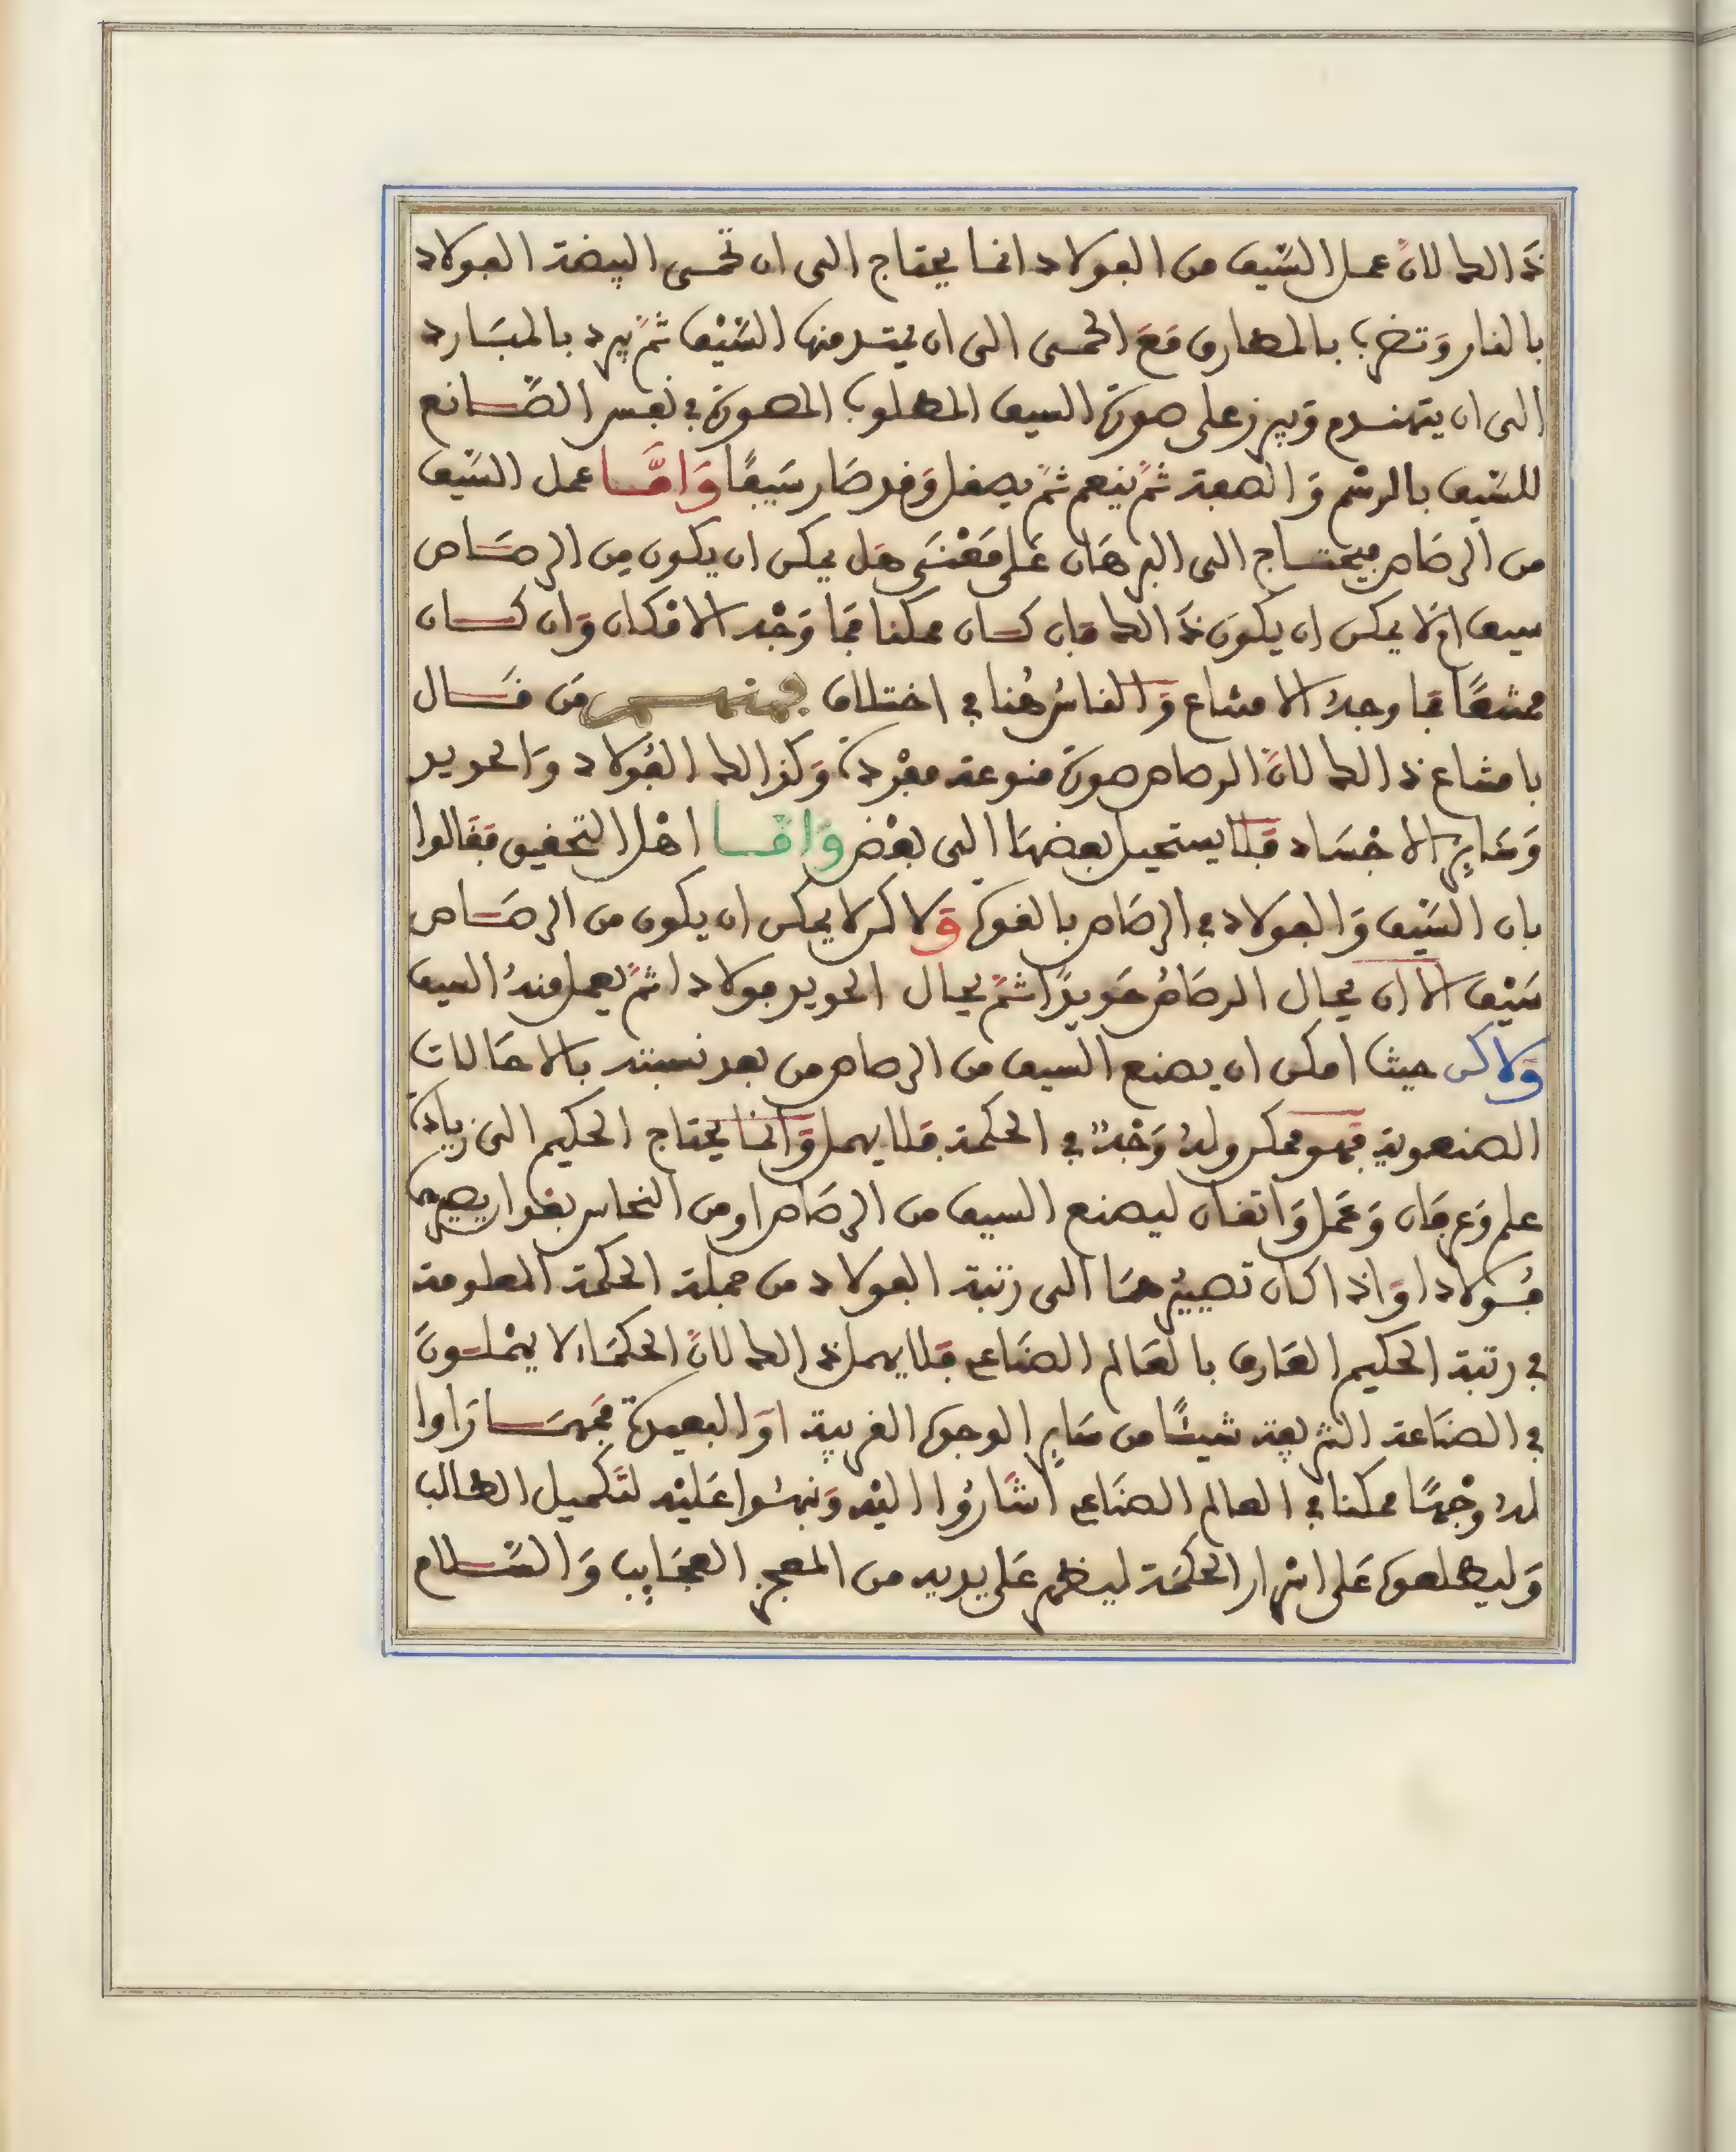 ذالك لانّ عمل السّيف من الفولاد انما يحتاج الى ان تحمى البيضة الفولاد
بالنار وَتضرب بالمطارق مَعَ الحمى الى ان يمتد منها السَّيْف ثمّ يبرد بالمبَارد
الى ان يتهندم وَيبرز على صورة السيف المطلوب المصورة في نفس الصَّانع
للسَّيف بالرسْم وَالصفة ثمّ ينعم ثمّ يصقل وَقد صَار سَيفًا وَامَّا عمل السَّيف
من الرصَاص فيحتاج الى البرهَان عَلى مَعْنَى هَل يمكن ان يكون مِن الرصَاص
سيف اوْلا يمكن ان يكون ذَالك فان كان ممكنا فمَا وَجْه الامْكان وَان كان
ممتنعًا فما وجهُ الامتناع وَالناسُ هُنا في اختلاف فمنهم مَن قَال
بامتناع ذالك لانّ الرصاص صورة منوعة مفْردة وَكذالك الفُولاد وَالحديد
وَسَايرِ الاجْسَاد فَلا يستحيل بعضهَا الى بعْض وَامّا اهْل التحقيق فقَالوا
بان السَّيْف وَالفولاد في الرصَاص بالقوة وَلاكن لا يمكن ان يكون من الرصَاص
سَيْف الا ان يحال الرصَاصُ حَديدًا ثمّ يحال الحديد فولادا ثمّ يعمل منهُ السيف
وَلاكن حيث امكن ان يصنع السيف من الرصاص من بعد نسبته بالاحَالات
الصنعوية فهو ممكن ولهُ وَجْهٌ في الحكمة فلا يهمل وَّانما يحتاج الحكيم الى زيادة
علم وَعرفَان وَعَمل وَاتقان ليصنع السيف من الرصَاص او من النحاس بقدر ايصيره
فُولادا وَاذا كان تصييرُهَا الى رتبة الفولاد من جملة الحكمة المعلومة
في رتبة الحكيم العَارف بالعَالم الصنَاعي فلا يهمل ذالك لانّ الحكمَاء لا يهْملونَ
في الصنَاعة الشريفة شيئًا من سَايرِ الوجوه القريبة اوَ البعيدة فمَهمَا رَاوا
لهُ وجْهًا ممكنا في العالم الصنَاعي اشَارُوا اليْه وَنبهُوا عَليْه لتَكميل الطالب
وَليطلعوه عَلى اسْرار الحكمَة ليظهر عَلى يديه من المعجز العجَايب وَالسَّلام